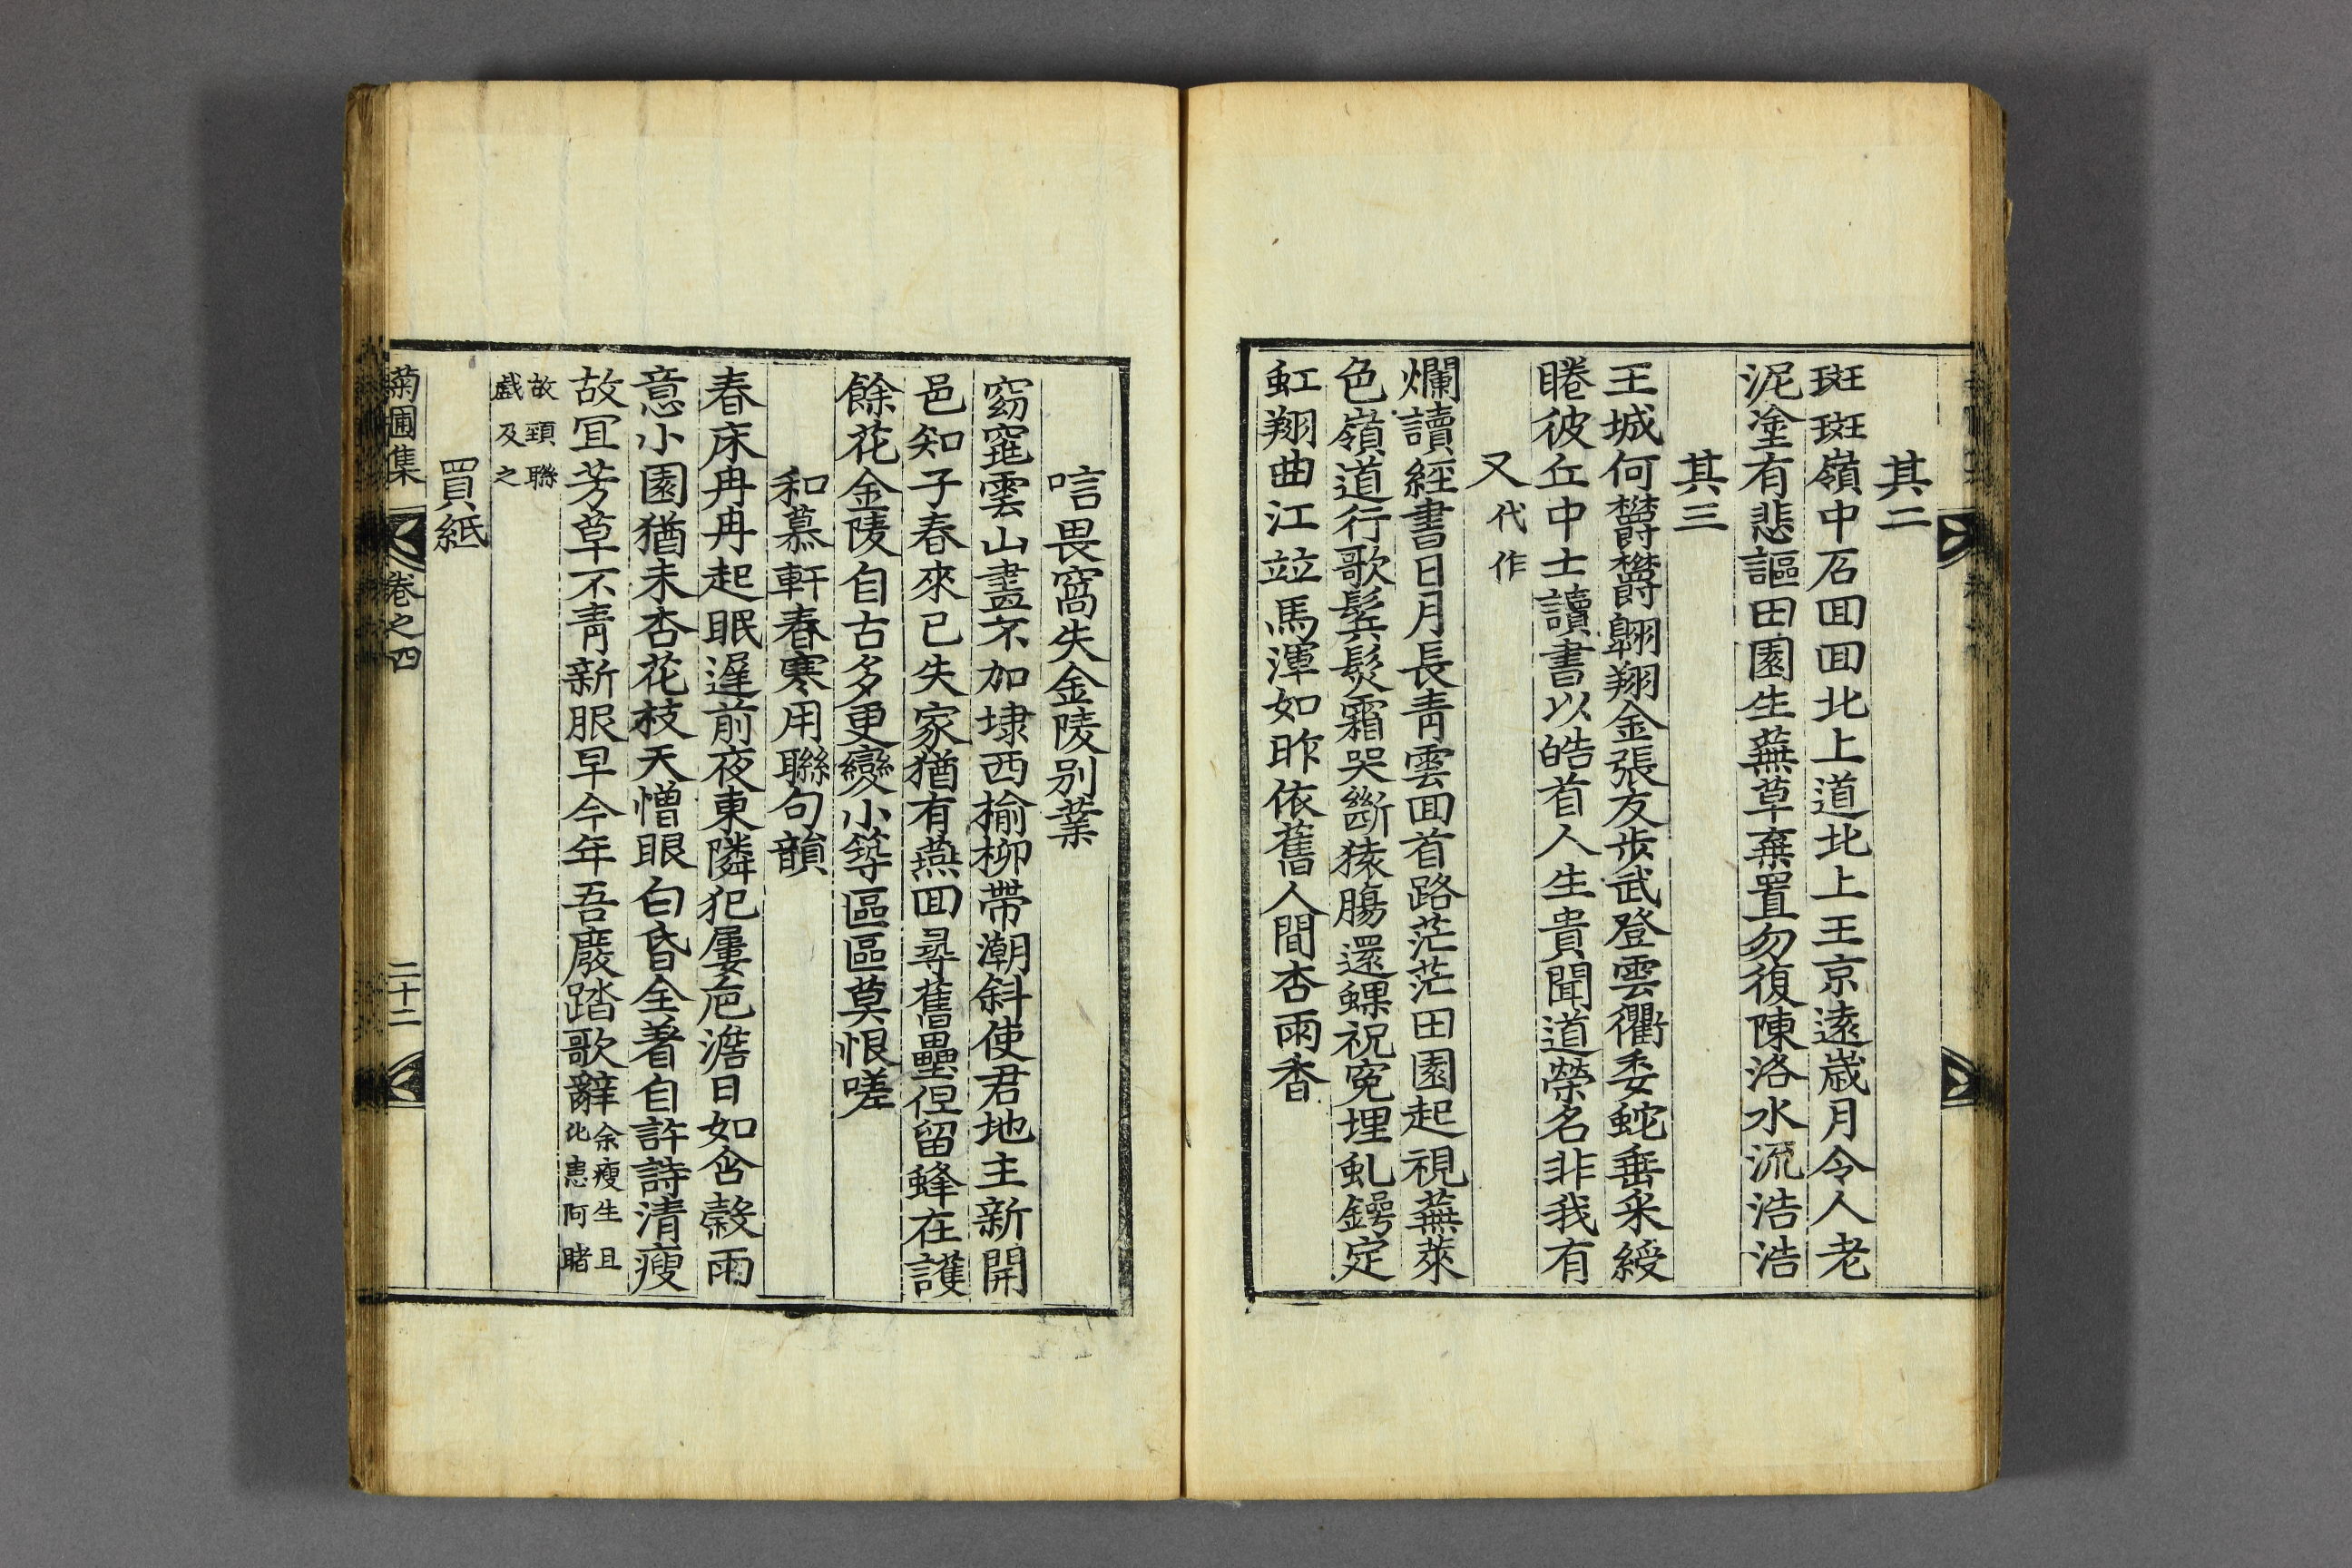 其二
斑斑嶺中石囬囬北上道北上王京遠歲月令人老
泥塗有悲謳田園生蕪草棄置勿復陳洛水流浩浩
其三
王城何欝欝翺翔金張友步武登雲衢委蛇垂采綬
睠彼丘中士讀書以皓首人生貴聞道榮名非我有
又代作
爛讀經書日月長靑雲囬首路茫茫田園起視蕪萊
色嶺道行歌鬂髮霜哭斷猿膓還螺祝寃埋虬鍔定
虹翔曲江竝馬渾如昨依舊人間杏雨香
唁畏窩失金陵别業
窈窕雲山盡不加埭西楡柳帶潮斜使君地主新開
邑知子春來已失家猶有燕囬尋舊壘但留蜂在護
餘花金陵自古多更變小築區區莫恨嗟
和慕軒春寒用聯句韻
春床冉冉起眠遲前夜東隣犯屢巵澹日如含縠雨
意小園猶未杏花枝天憎眼白昏全著自許詩清瘦
故冝芳草不靑新服早今年吾廢踏歌辭余瘦生且
化恚阿睹
故頚聯
戱及之
買紙
菊圃集 卷之四 二十二